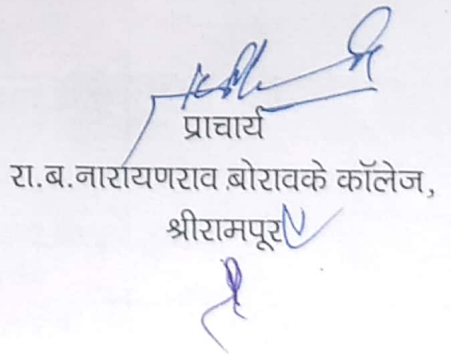 प्राचार्य
रा.ब.नारायणराव बोरावके कॉलेज,
श्रीरामपूर